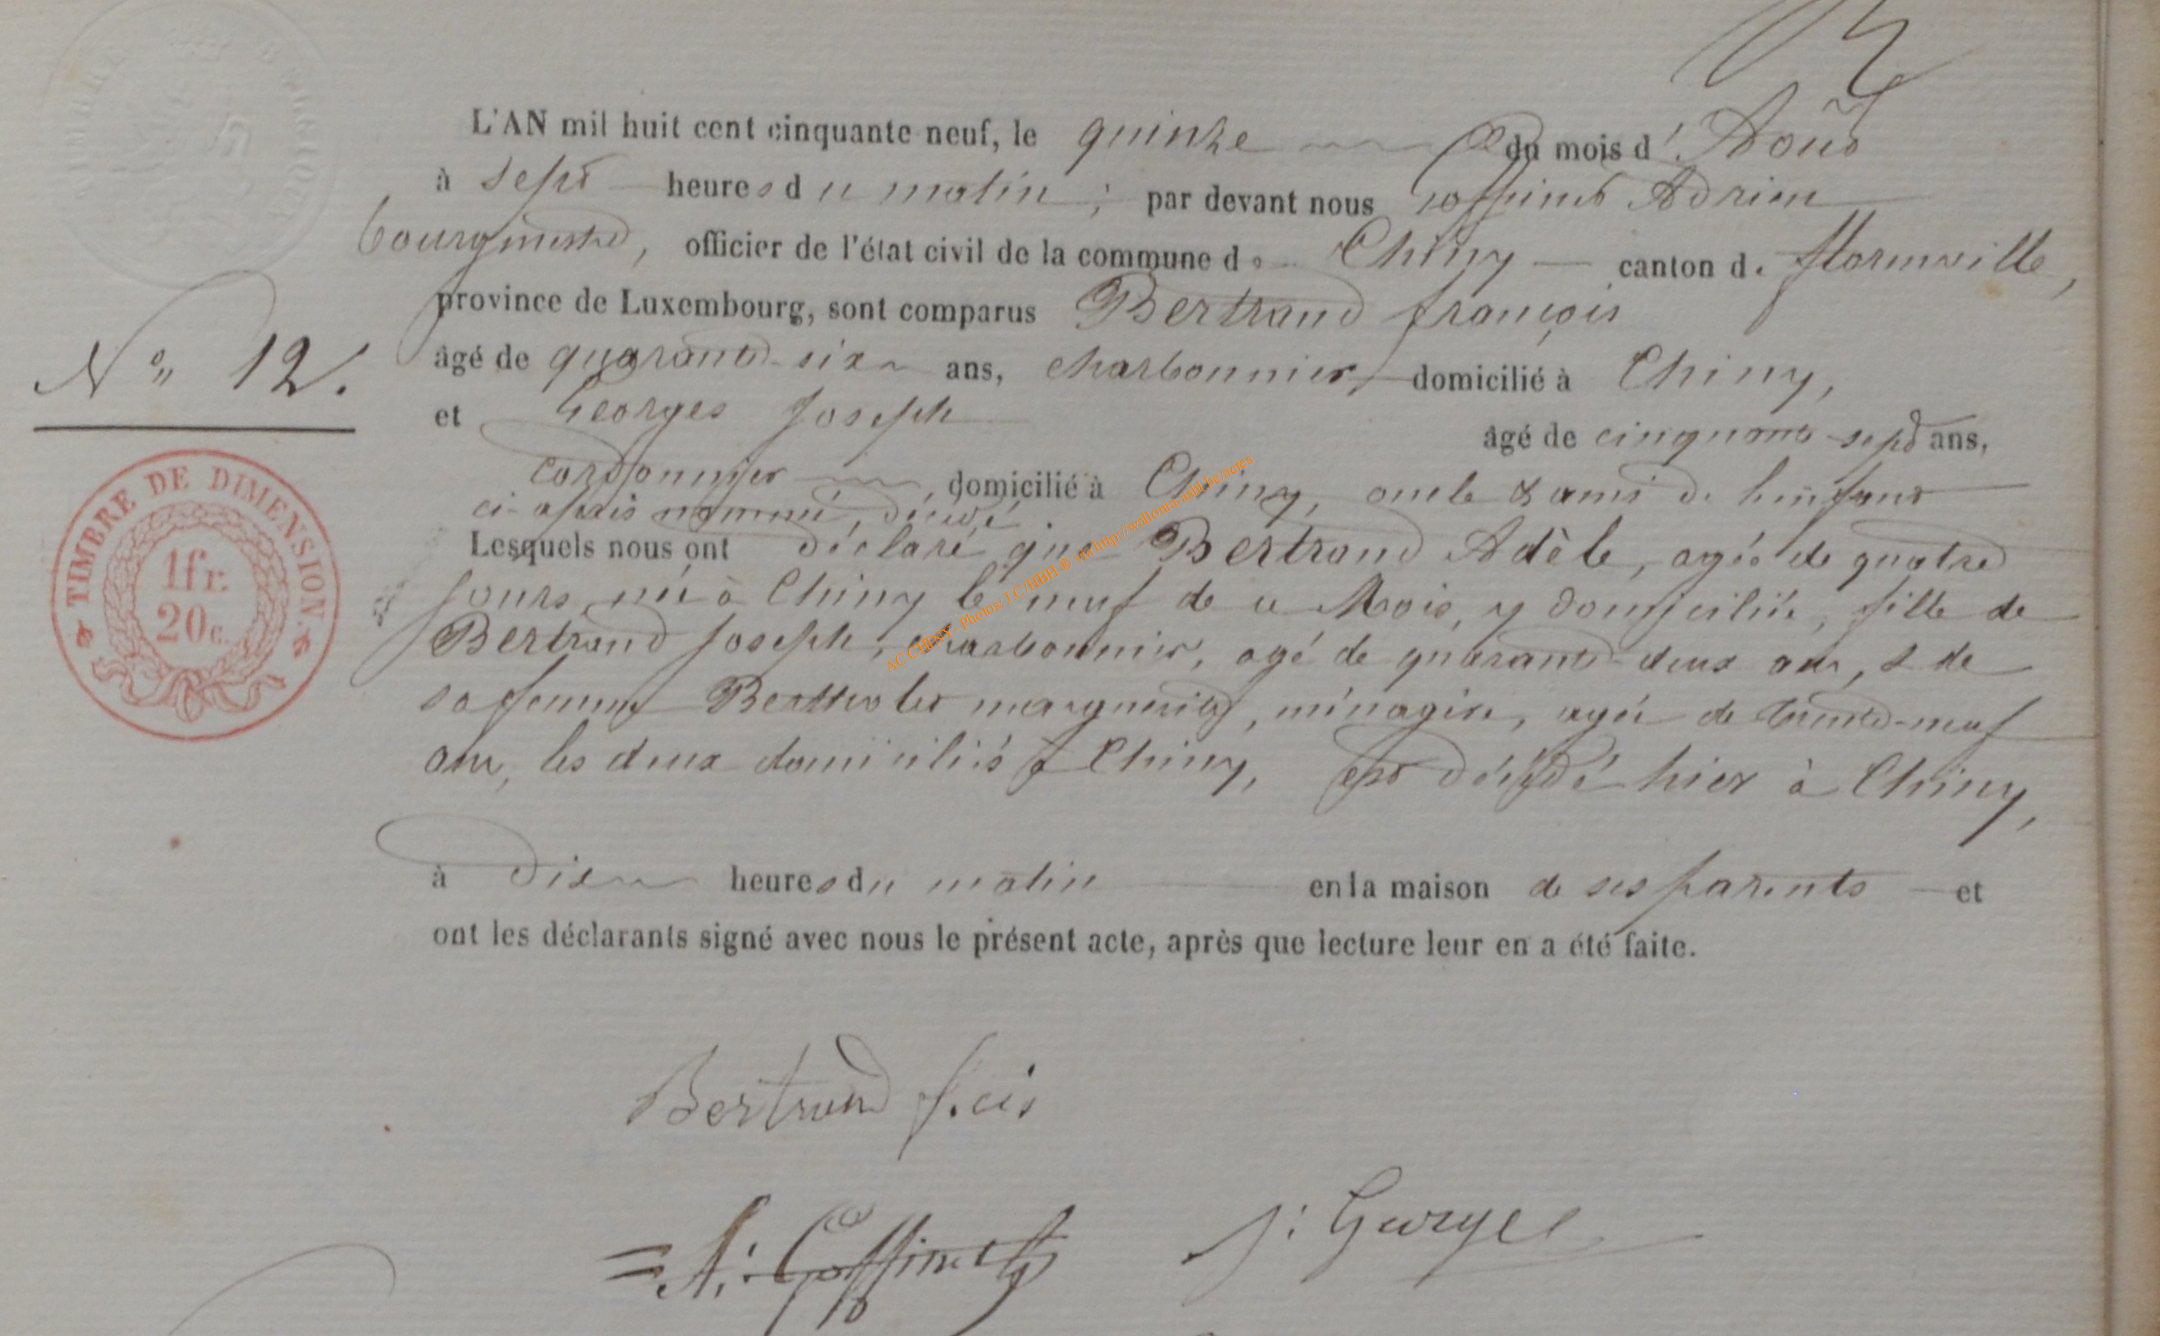 L'AN mil huit cent cinquante neuf, le quinze du mois d'Août
à sept heures du matin ; par devant nous Goffinet Adrien
bourgmestre, officier de l'état civil de la commune de Chiny canton de florenville,
province de Luxembourg, sont comparus Bertrand françois
N° 12.
âgé de quarante-six ans, charbonnier, domicilié à Chiny,
et Georges Joseph âgé de cinquante-sept ans,
cordonnier, domicilié à Chiny, oncle & ami de l'enfant
ci-après nommé, décédé
Lesquels nous ont déclaré que Bertrand Adèle, agée de quatre
jours, née à Chiny le neuf de ce Mois, y domiciliée, fille de
Bertrand Joseph, charbonnier, agé de quarante-deux ans, & de
sa femme marguerite, ménagère, agée de trente-neuf
ans, les deux domiciliés à Chiny, est décédé hier à Chiny,
à dix heures du matin en la maison de ses parents et
ont les déclarants signé avec nous le présent acte, après que lecture leur en a été faite.
Bertrand f.cis
A: Goffinet
J: Georges
TIMBRE DE DIMENSION.
1 fr.
20 c.